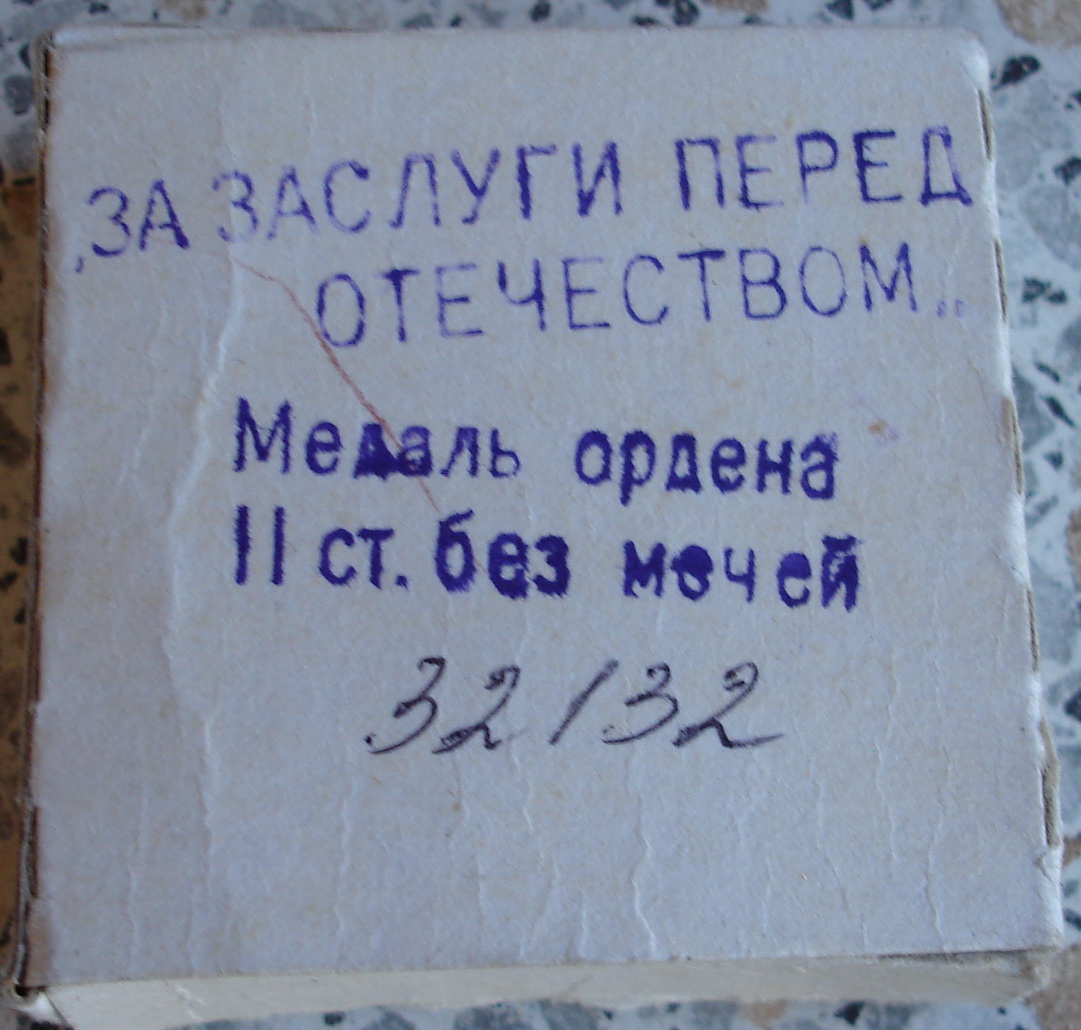 „ЗА ЗАСЛУГИ ПЕРЕД
ОТЕЧЕСТВОМ„
Медаль ордена
II ст. без мечей
32132